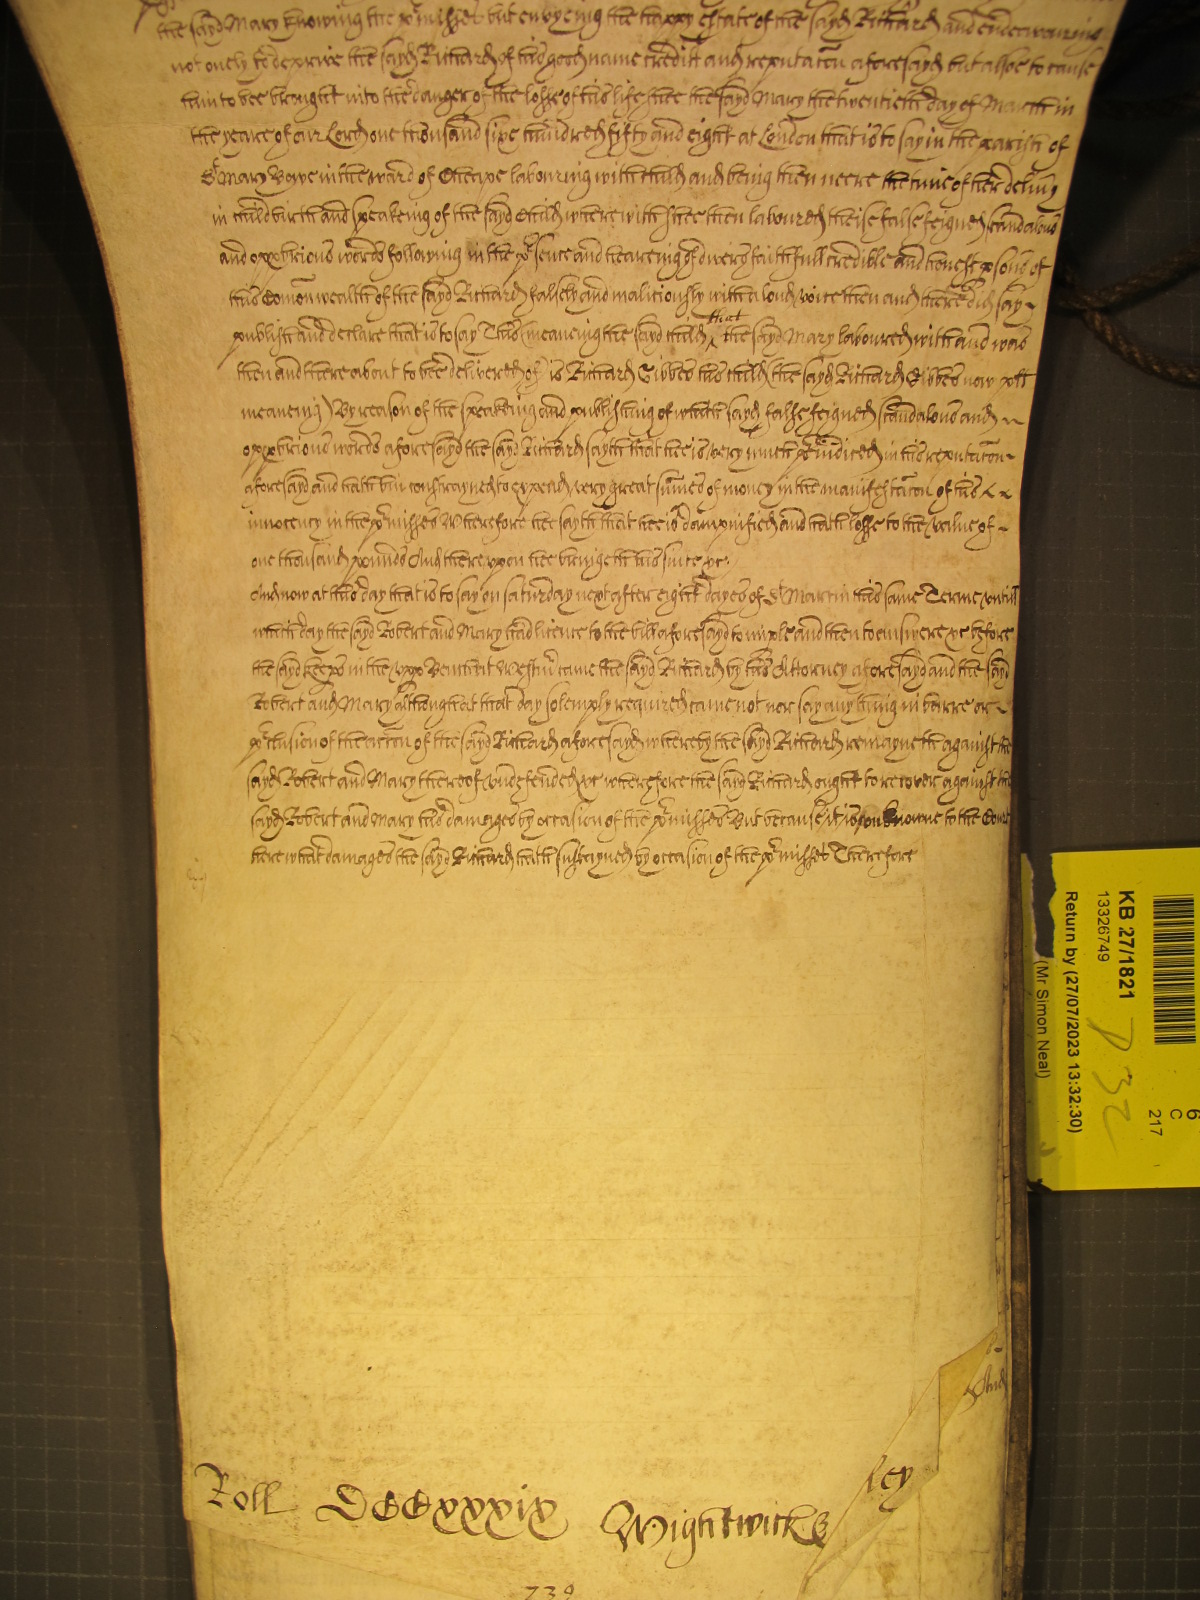 the sayd Mary knowing the p'misses but envyeing the happy estate of the sayd Richard and endeavouring
not onely to deprive the sayd Richard of his good name creditt and reputacon aforesayd but alsoe to cause
him to bee brought into the danger of the losse of his life shee the sayd Mary the twentieth day of March in
the yeare of our Lord one thousand sixe hundred fifty and eight at London that is to say in the parish of
St Mary Bowe in the ward of Cheape labouring with child and being then neere the tyme of her delivy
in child birth and speakeing of the sayd Child wherewith shee then laboured theise false feigned scandalous
and opprbrious words following in the p'sence and heareing of divers faithfull credible and honest psons of
this Comonwealth of the sayd Richard falsely and malitiously with a loud voice then and there did say
publish and declare that is to say This (meaneing the sayd child that the sayd Mary laboured with and was
then and there about to bee delivered of) is Richard Gibbes his child (the sayd Richard Gibbes now plt
meaneing) By reason of the speakeing and publishing of which sayd false feigned scandalous and
opprbrious words aforesayd the sayd Richard sayth that hee is very much p'iudiced in his reputacon
aforesayd and hath bin constrayned to expend very great sumes of money in the manifestacon of his
innocency in the p'misses Wherefore hee sayth that hee is dampnified and hath losse to the value of
one thousand pounds And thereupon hee bringeth his suite &c
And now at this day that is to say on Saturday next after eight dayes of St Martin this same Terme untill
which day the sayd Robert and Mary had licence to the bill aforesayd to imple and then to answere &c before
the sayd keeps in the upp Bench at Westmr came the sayd Richard by his Attorney aforesayd and the sayd
Robert and Mary although at that day solemply required came not nor say any thing in barre or
p'clusion of the accon of the sayd Richard aforesayd whereby the sayd Richard remayneth against the
sayd Robert and Mary thereof undefended &c wherefore the sayd Richard ought to recover against the
sayd Robert and Mary his damages by occasion of the p'misses But because it is unknowne to the Court
here what damages the sayd Richard hath susteyned by occasion of the p'misses Therefore
Roll DCCxxxix Wightwick
ley
739
KB 27/1821
13326749
Return by (27/07/2023 13:32:30)
(Mr Simon Neal)
P 32
6
C
217